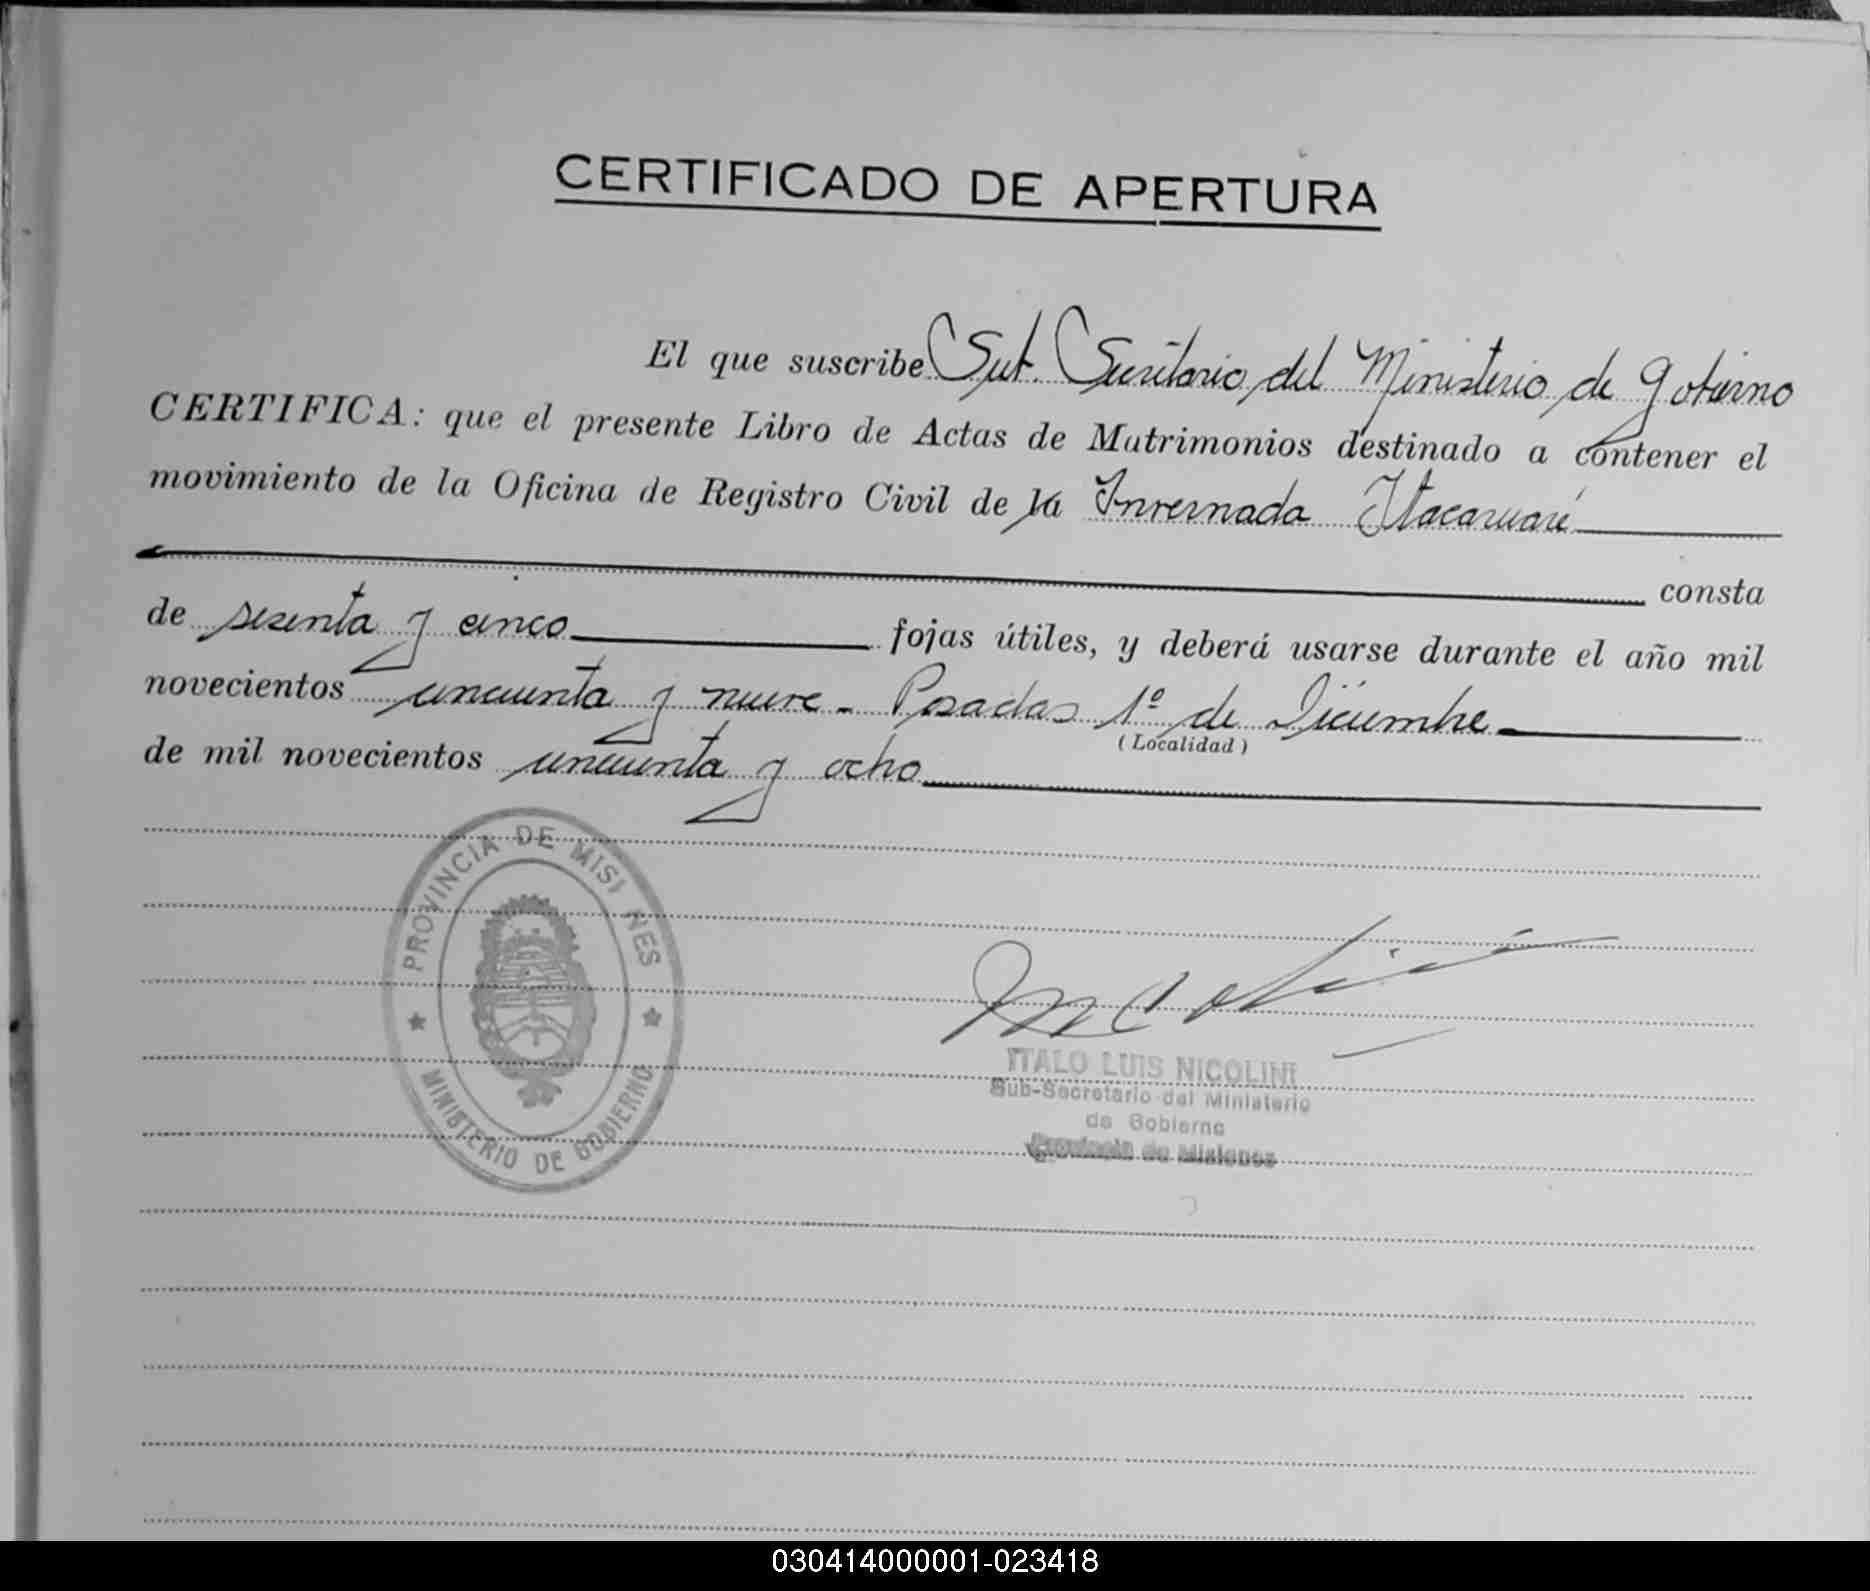 CERTIFICADO DE APERTURA
El que suscribe Sub. Secretario del Ministerio de Gobierno
CERTIFICA: que el presente Libro de Actas de Matrimonios destinado a contener el
movimiento de la Oficina de Registro Civil de la Invernada Itacaruaré
consta
de sesenta y cinco fojas útiles, y deberá usarse durante el año mil
novecientos cincuenta y nueve - Posadas 1º de Diciembre
(Localidad)
de mil novecientos cincuenta y ocho
PROVINCIA DE MISIONES
MINISTERIO DE GOBIERNO
ITALO LUIS NICOLINI
Sub-Secretario del Ministerio
de Gobierno
Provincia de Misiones
030414000001-023418